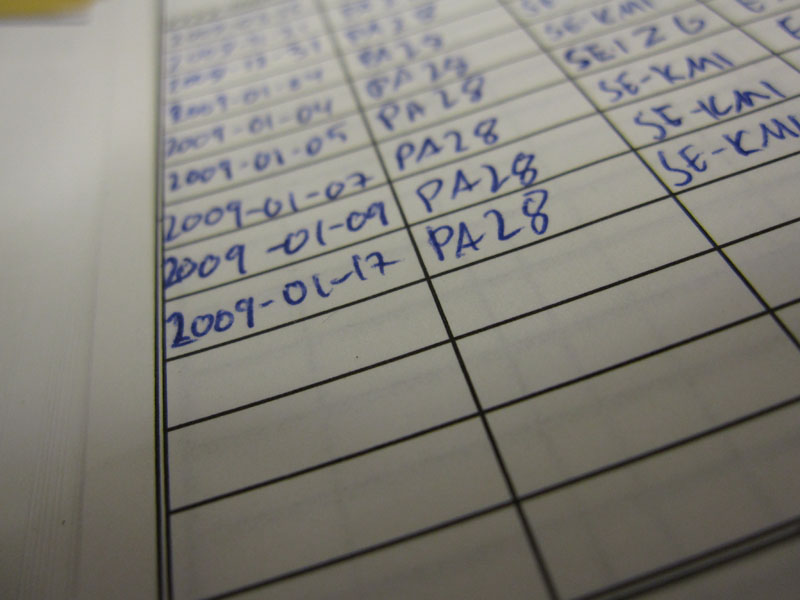 PA28
2009-01-04 PA28
2009-01-04 PA28 SE-KMI
2009-01-05 PA28 SEIZG
2009-01-07 PA28 SE-KMI
2009-01-09 PA28 SE-KMI
2009-01-17 PA28 SE-KMI